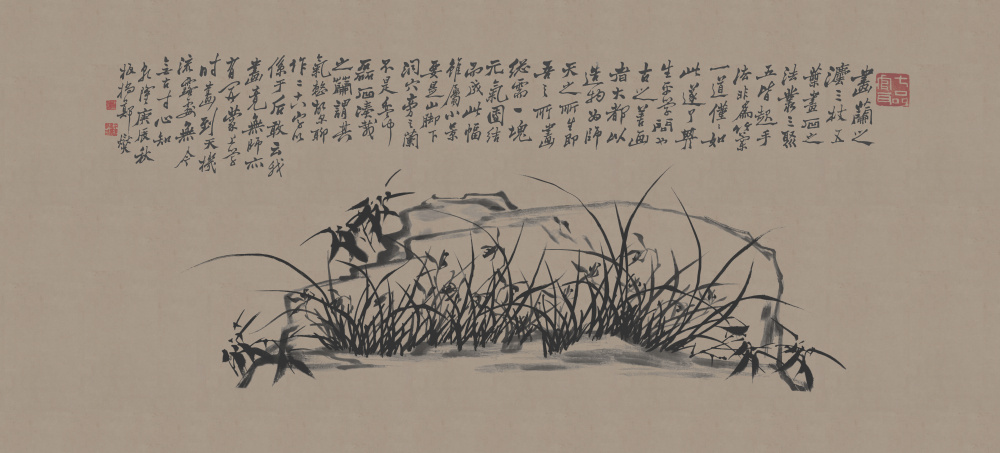 七品官耳
畫蘭之
灋三枝五
葉畫石之
法叢三聚
五皆起手
法非為竹蘭
一道僅僅如
此遂了其
生平學問也
古之善画
者大都以
造物為師
天之所生即
吾之所畫
總需一塊
元氣團結
而成此幅
雖屬小景
要是山脚下
洞穴旁之蘭
不是盆中
磊石凑栽
之蘭謂其
氣整故爾聊
作二十八字以
係于后敢云我
畫竟無師亦
有開蒙上學
时畫到天機
流露處無今
無古寸心知
乾隆庚辰秋
板橋鄭燮